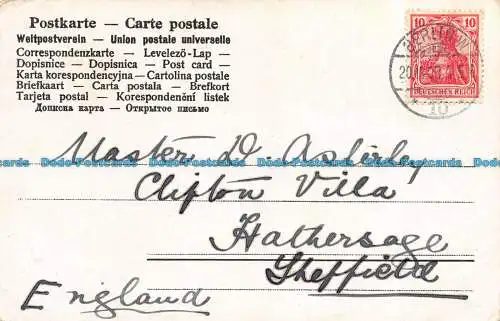 Postkarte — Carte postale
Weltpostverein — Union postale universelle
Correspondenzkarte — Levelező-Lap —
Dopisnice — Dopisnica — Post card —
Karta korespondencyjna — Cartolina postale
Briefkaart — Carta postala — Brefkort
Tarjeta postal — Korespondenční listek
Дописна карта — Открытое письмо
10 10
DEUTSCHES REICH
Master D. Asterby
Clifton Villa
Hathersage
Sheffield
England
Dodo-Postcards Dodo-Postcards Dodo-Postcards Dodo-Postcards